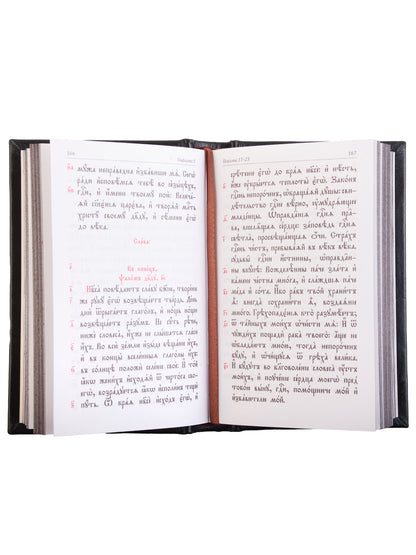 166
Ѱалмы
мꙋ́жа непра́ведна и҆зба́виши мѧ̀. Сегѡ̀
ра́ди и҆сповѣ́мсѧ тебѣ̀ во ꙗ҆зы́цѣхъ,
гдⷭ҇и, и҆ и҆́мени твоемꙋ̀ пою̀:
велича́ѧй спⷭ҇е́нїѧ царє́ва, и҆ творѧ́й млⷭ҇ть
хрⷭ҇тꙋ̀ своемꙋ̀ дв҃дꙋ, и҆ сѣ́мени є҆гѡ̀
до вѣ́ка.
Сла́ва:
Въ коне́цъ,
ѱало́мъ дв҃дꙋ, и҃і
Нб҃са̀ повѣ́даютъ сла́вꙋ бж҃їю, творе́нїе
же рꙋкꙋ̀ є҆гѡ̀ возвѣща́етъ тве́рдь. Де́нь
днѝ ѿрыга́етъ глаго́лъ, и҆ но́щь но́щи
возвѣща́етъ ра́зꙋмъ. Не сꙋ́ть рѣ̑чи,
нижѐ словеса̀, и҆́хже не слы́шатсѧ гла́си
и҆́хъ. Во всю̀ зе́млю и҆зы́де вѣща́нїе и҆́хъ,
и҆ въ концы̀ вселе́нныѧ глаго́лы и҆́хъ:
въ со́лнцѣ положѝ селе́нїе своѐ. И҆ то́й
ꙗ҆́кѡ жени́хъ и҆сходѧ́й ѿ черто́га своегѡ̀,
возра́дꙋетсѧ ꙗ҆́кѡ и҆споли́нъ тещѝ
пꙋ́ть. Ѿ кра́ѧ нб҃сѐ и҆схо́дъ є҆гѡ̀, и҆
167
Ѱалмы 17-23
срѣ́тенїе є҆гѡ̀ до кра́ѧ нб҃сѐ: и҆ нѣ́сть,
и҆́же ᲂу҆кры́етсѧ теплоты̀ є҆гѡ̀. Зако́нъ
гдⷭ҇ень непоро́ченъ, ѡ҆браща́ѧй дꙋ́шы: сви-
дѣ́тельство гдⷭ҇не вѣ́рно, ᲂу҆мꙋдрѧ́ющее
младе́нцы. Ѡ҆правда̑нїѧ гдⷭ҇нѧ пра̑-
ва, веселѧ̑щаѧ се́рдце: за́повѣдь гдⷭ҇нѧ
свѣтла̀, просвѣща́ющаѧ ѻ҆́чи. Стра́хъ
гдⷭ҇ень чи́стъ, пребыва́ѧй въ вѣ́къ вѣ́ка:
сꙋдьбы̑ гдⷭ҇ни и҆́стинны, ѡ҆правда̑н-
ны вкꙋ́пѣ: Вожделѣ̑нны па́че зла́та и҆
ка́мене че́стна мно́га, и҆ слаждѡ́ша па́че
ме́да и҆ со́та. И҆́бо ра́бъ тво́й храни́тъ
ѧ҆̀: внегда̀ сохрани́ти ѧ҆̀, воздаѧ́нїе
мно́го. Грѣхопадє́нїѧ кто̀ разꙋмѣ́етъ;
ѿ та́йныхъ мои́хъ ѡ҆чи́сти мѧ̀: И҆ ѿ
чꙋжди́хъ пощадѝ раба̀ твоего̀: а҆́ще не
ѡ҆блада́ютъ мно́ю, тогда̀ непоро́ченъ
бꙋ́дꙋ, и҆ ѡ҆чи́щꙋсѧ ѿ грѣха̀ вели́ка.
И҆ бꙋ́дꙋтъ во благоволе́нїе словеса̀ ᲂу҆́стъ
мои́хъ, и҆ поꙋче́нїе се́рдца моегѡ̀ пред̾
тобо́ю вы́нꙋ, гдⷭ҇и, помо́щниче мо́й и҆
и҆зба́вителю мо́й.